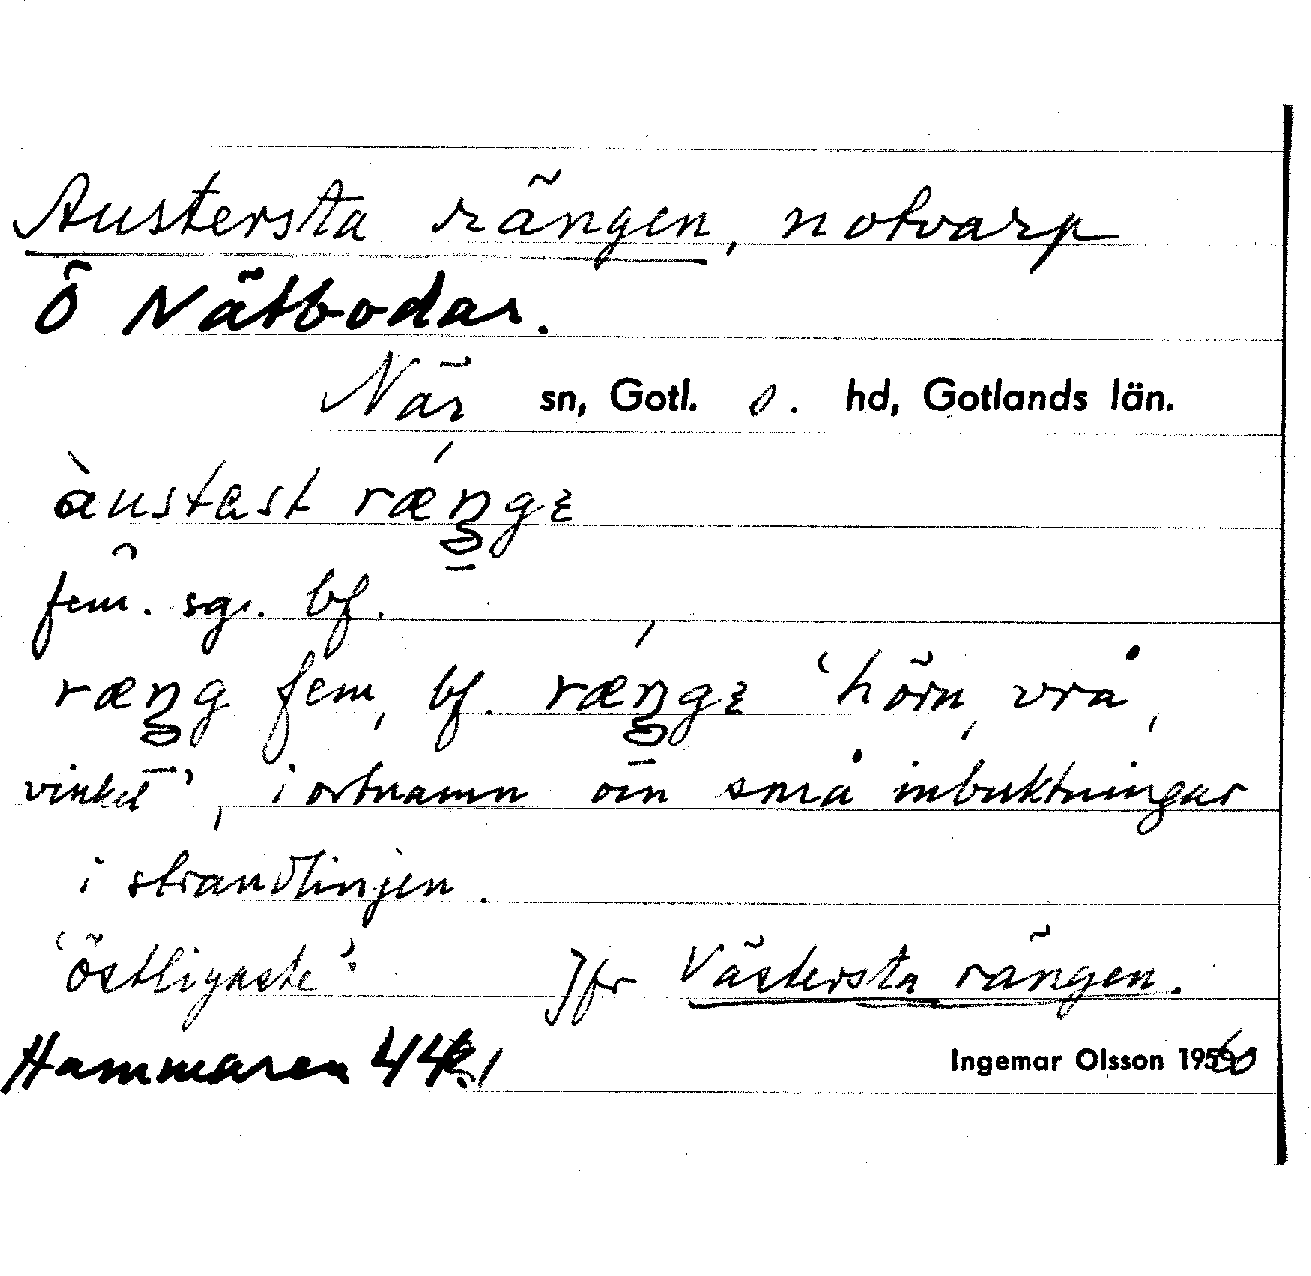 Austersta rängen, notvarp
Ö Nätbodar.
När sn, Gotl. s. hd, Gotlands län.
àustast rǽngɛ
fem. sg. bf.
ræng fem, bf. rǽngɛ 'hörn, vrå,
vinkel', i ortnamn om små inbuktningar
i strandlinjen.
'östligaste'. Jfr Västersta rängen.
Hammaren 44
Ingemar Olsson 1960